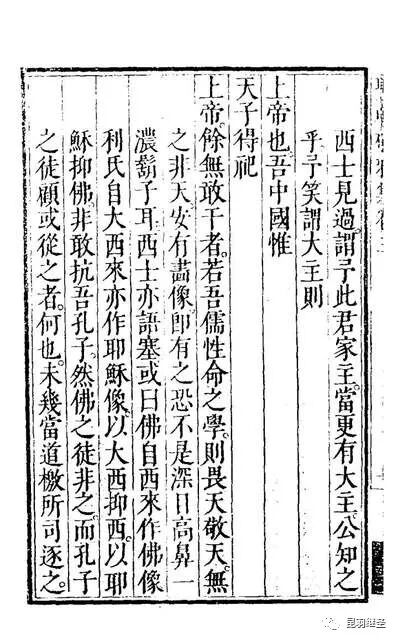 西士見過謂予此君家主當更有大主公知之
乎予笑謂大主則
上帝也吾中國惟
天子得祀
上帝餘無敢干者若吾儒性命之學則畏天敬天無
之非天安有畫像即有之恐不是深目高鼻一
濃鬍子耳西士亦語塞或曰佛自西來作佛像
利氏自大西來亦作耶穌像以大西抑西以耶
穌抑佛非敢抗吾孔子然佛之徒非之而孔子
之徒顧或從之者何也未幾當道檄所司逐之
昆羽继圣